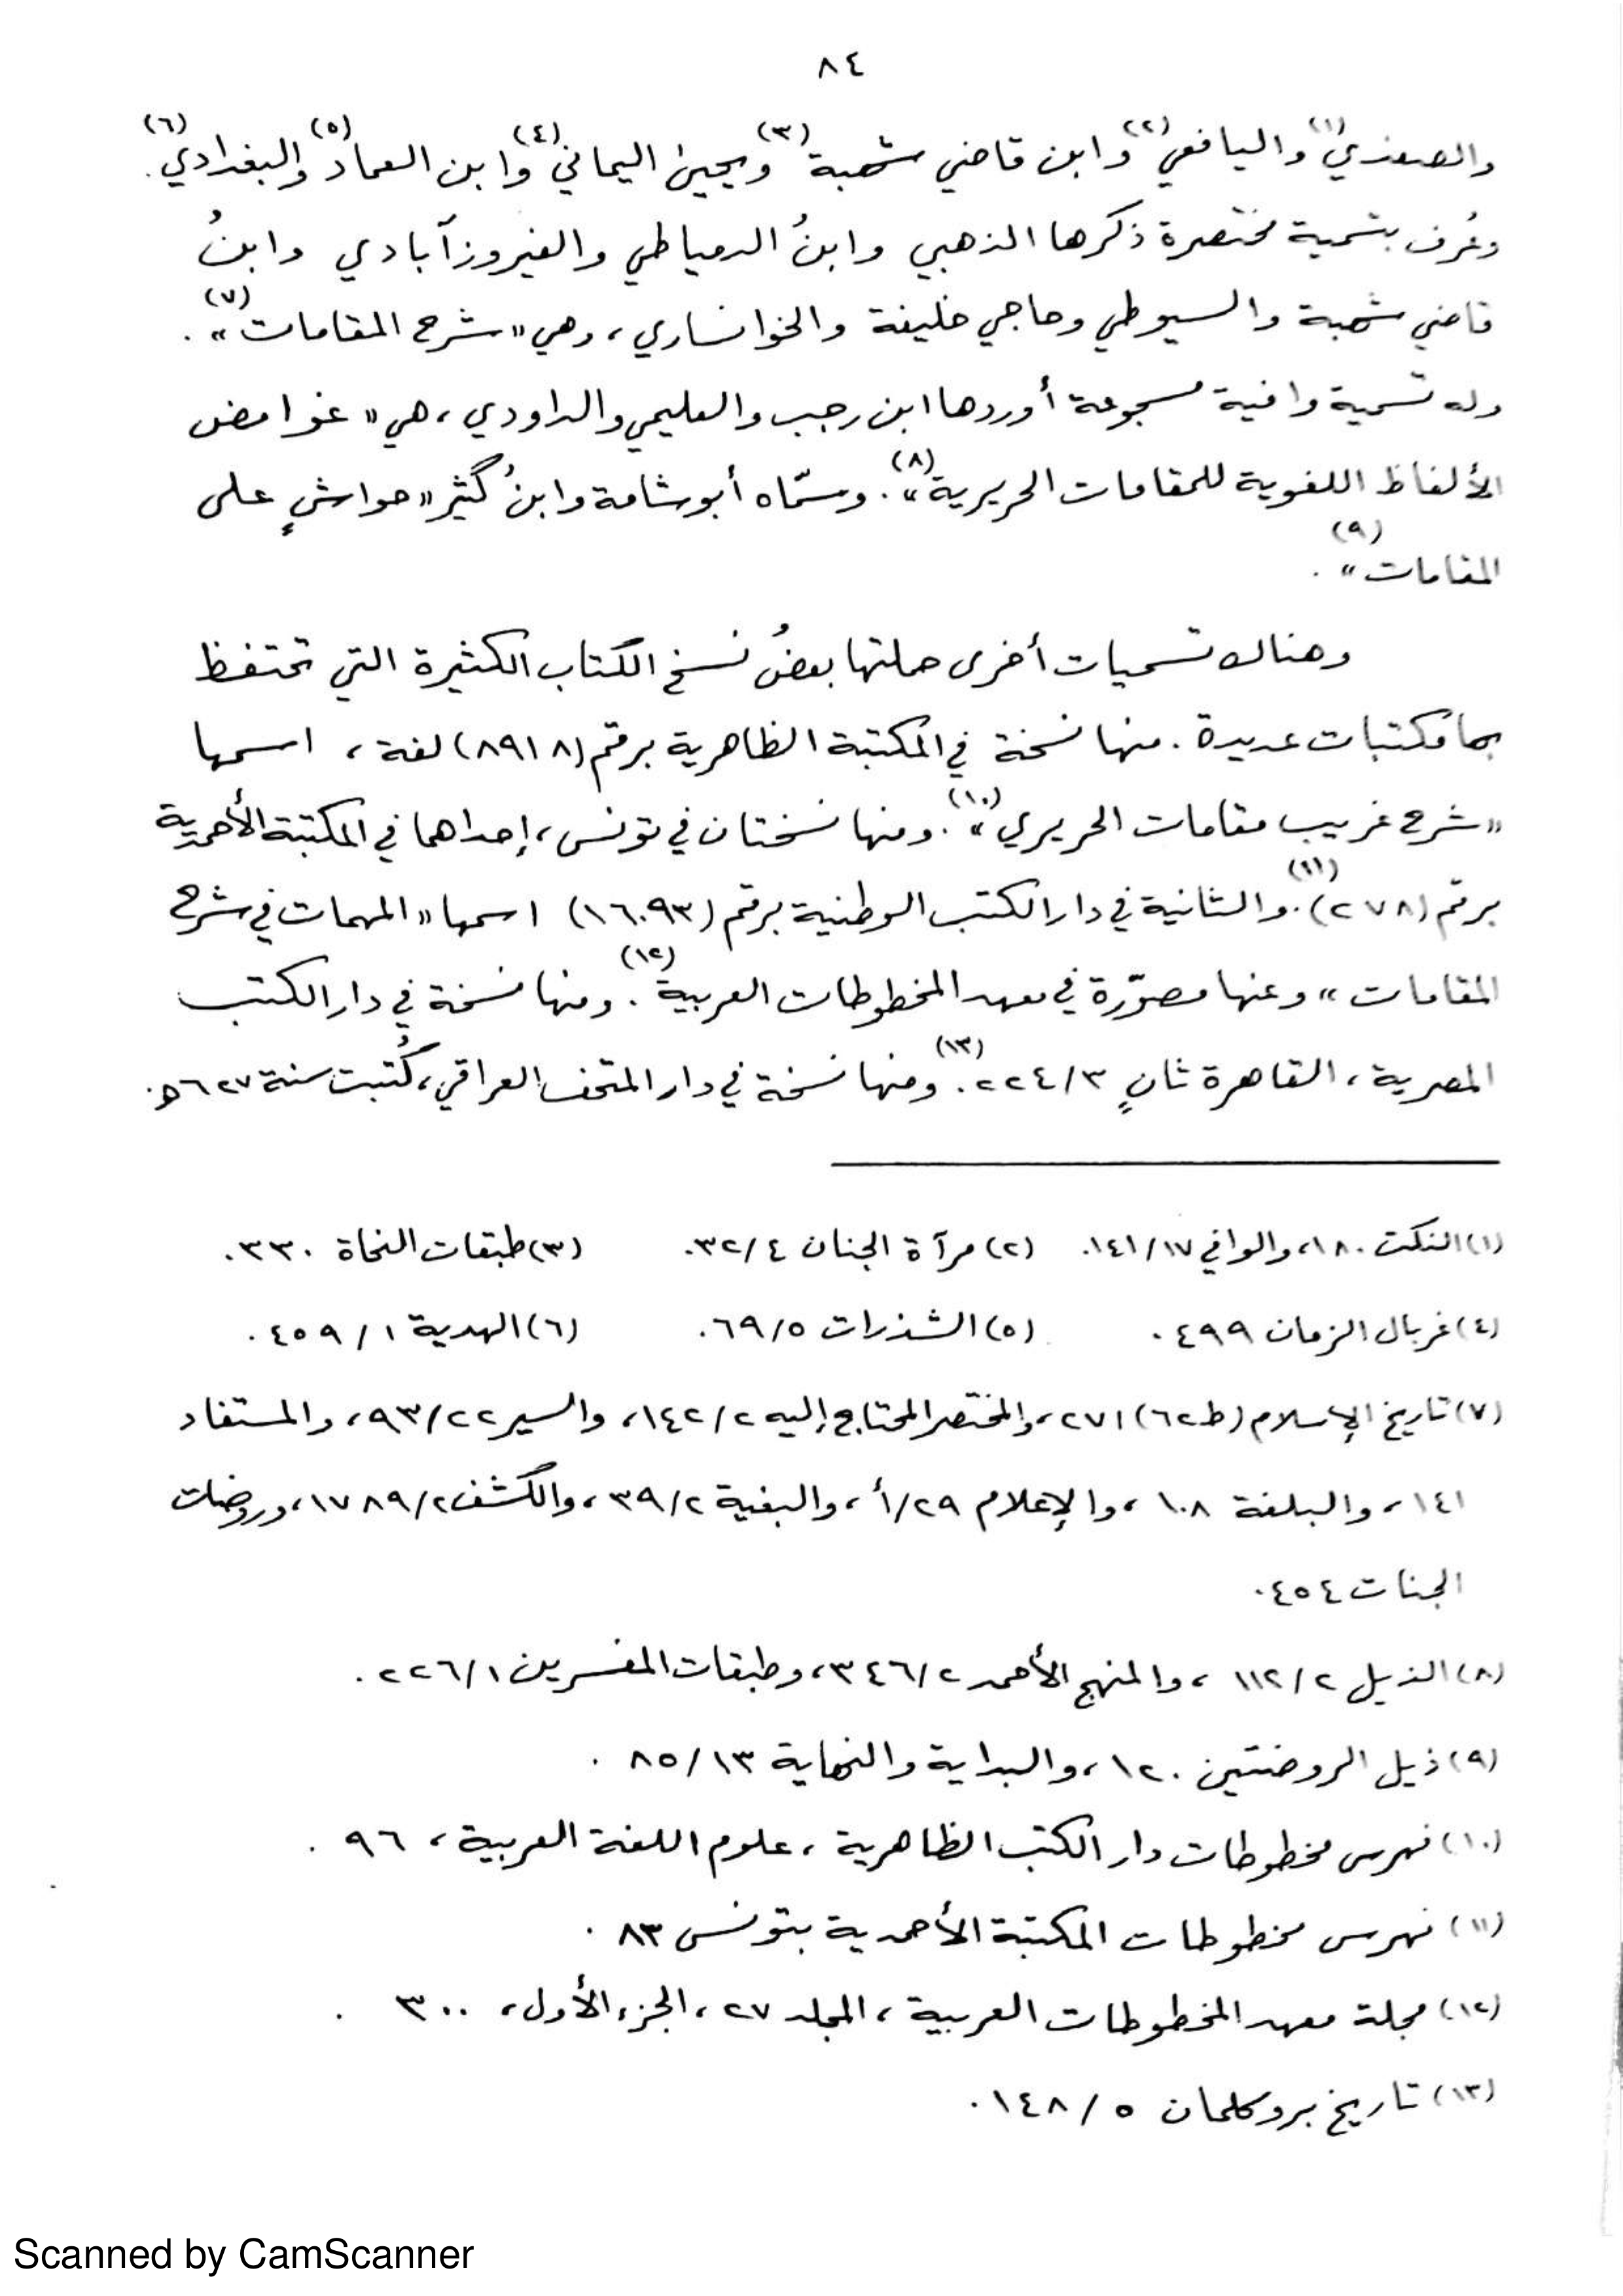 ٨٤
والصفدي(١) واليافعي(٢) وابن قاضي شهبة(٣) ويحيى اليماني(٤) وابن العماد(٥) والبغدادي(٦).
وعُرف بتسمية مختصرة ذكرها الذهبي وابنُ الدمياطي والفيروزآبادي وابنُ
قاضي شهبة والسيوطي وحاجي خليفة والخوانساري، وهي «شرح المقامات»(٧).
وله تسمية وافية مسجوعة أوردها ابن رجب والعليمي والداودي، هي «غوامض
الألفاظ اللغوية للمقامات الحريرية»(٨). وسمّاه أبو شامة وابنُ كثير «حواشٍ على
المقامات»(٩).
وهناك تسميات أخرى حملتها بعضُ نسخ الكتاب الكثيرة التي تحتفظ
بها مكتبات عديدة. منها نسخة في المكتبة الظاهرية برقم (٨٩١٨) لغة، اسمها
«شرح غريب مقامات الحريري»(١٠). ومنها نسختان في تونس، إحداهما في المكتبة الأحمدية
برقم (٢٧٨)(١١). والثانية في دار الكتب الوطنية برقم (١٦٠٩٣) اسمها «المهمات في شرح
المقامات» وعنها مصوّرة في معهد المخطوطات العربية(١٢). ومنها نسخة في دار الكتب
المصرية، القاهرة ثانٍ ٢٢٤/٣(١٣). ومنها نسخة في دار المتحف العراقي، كُتبت سنة ٦٢٧ه.
(١) النكت ١٨٠، والوافي ١٤١/١٧. (٢) مرآة الجنان ٣٢/٤. (٣) طبقات النحاة ٣٣٠.
(٤) غربال الزمان ٤٩٩. (٥) الشذرات ٦٩/٥. (٦) الهدية ٤٥٩/١.
(٧) تاريخ الإسلام (ط٦٢) ٢٧١، والمختصر المحتاج إليه ١٤٢/٢، والسير ٩٣/٢٢، والمستفاد
١٤١، والبلغة ١٠٨، والإعلام ٢٩/أ، والبغية ٣٩/٢، والكشف ١٧٨٩/٢، وروضات
الجنات ٤٥٤.
(٨) الذيل ١١٢/٢، والمنهج الأحمد ٣٤٦/٢، وطبقات المفسرين ٢٢٦/١.
(٩) ذيل الروضتين ١٢٠، والبداية والنهاية ٨٥/١٣.
(١٠) فهرس مخطوطات دار الكتب الظاهرية، علوم اللغة العربية، ٩٦.
(١١) فهرس مخطوطات المكتبة الأحمدية بتونس ٨٣.
(١٢) مجلة معهد المخطوطات العربية، المجلد ٢٧، الجزء الأول، ٣٠٠.
(١٣) تاريخ بروكلمان ١٤٨/٥.
Scanned by CamScanner